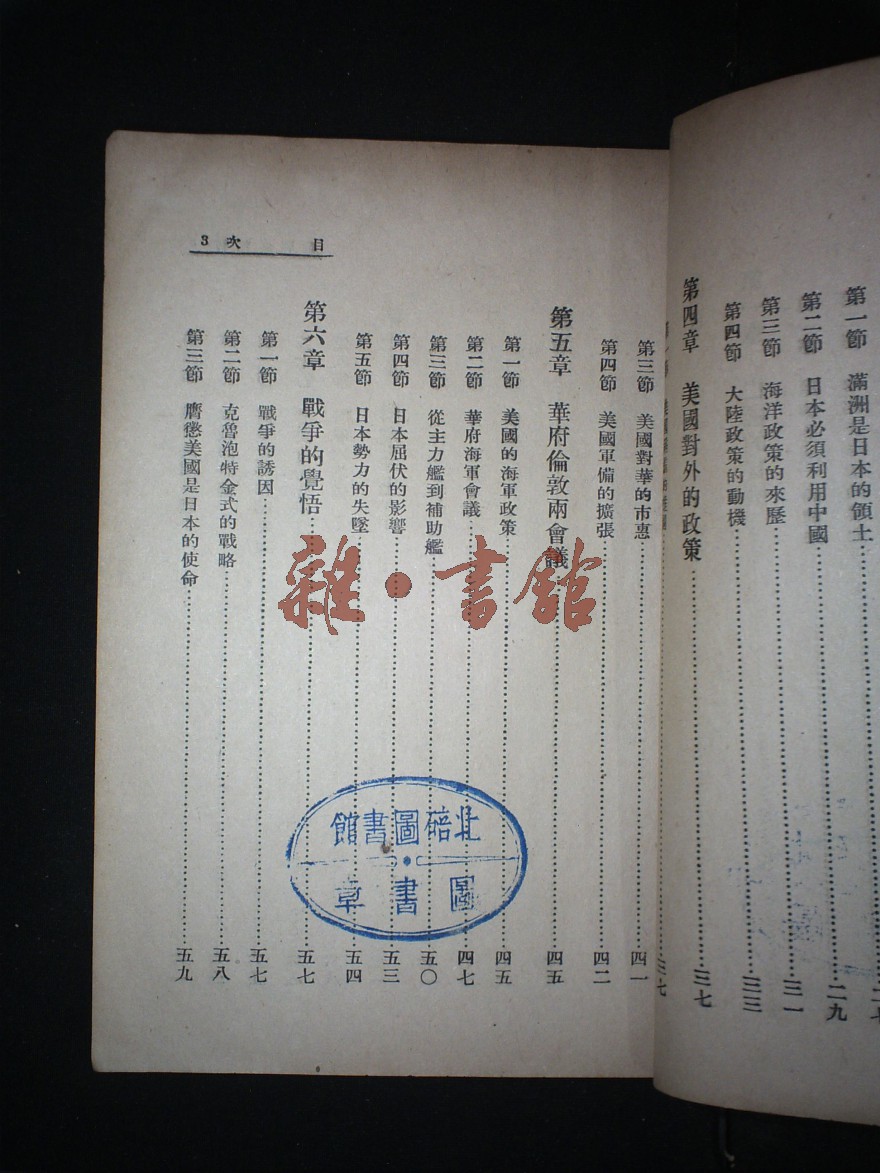 第一節 滿洲是日本的領土
第二節 日本必須利用中國 二九
第三節 海洋政策的來歷 三一
第四節 大陸政策的動機 三三
第四章 美國對外的政策 三七
三七
目次 3
第三節 美國對華的市惠 四一
第四節 美國軍備的擴張 四二
第五章 華府倫敦兩會議 四五
第一節 美國的海軍政策 四五
第二節 華府海軍會議 四七
第三節 從主力艦到補助艦 五〇
第四節 日本屈伏的影響 五三
第五節 日本勢力的失墜 五四
第六章 戰爭的覺悟 五七
第一節 戰爭的誘因 五七
第二節 克魯泡特金式的戰略 五八
第三節 膺懲美國是日本的使命 五九
雜·書館
北碚圖書館
圖書章